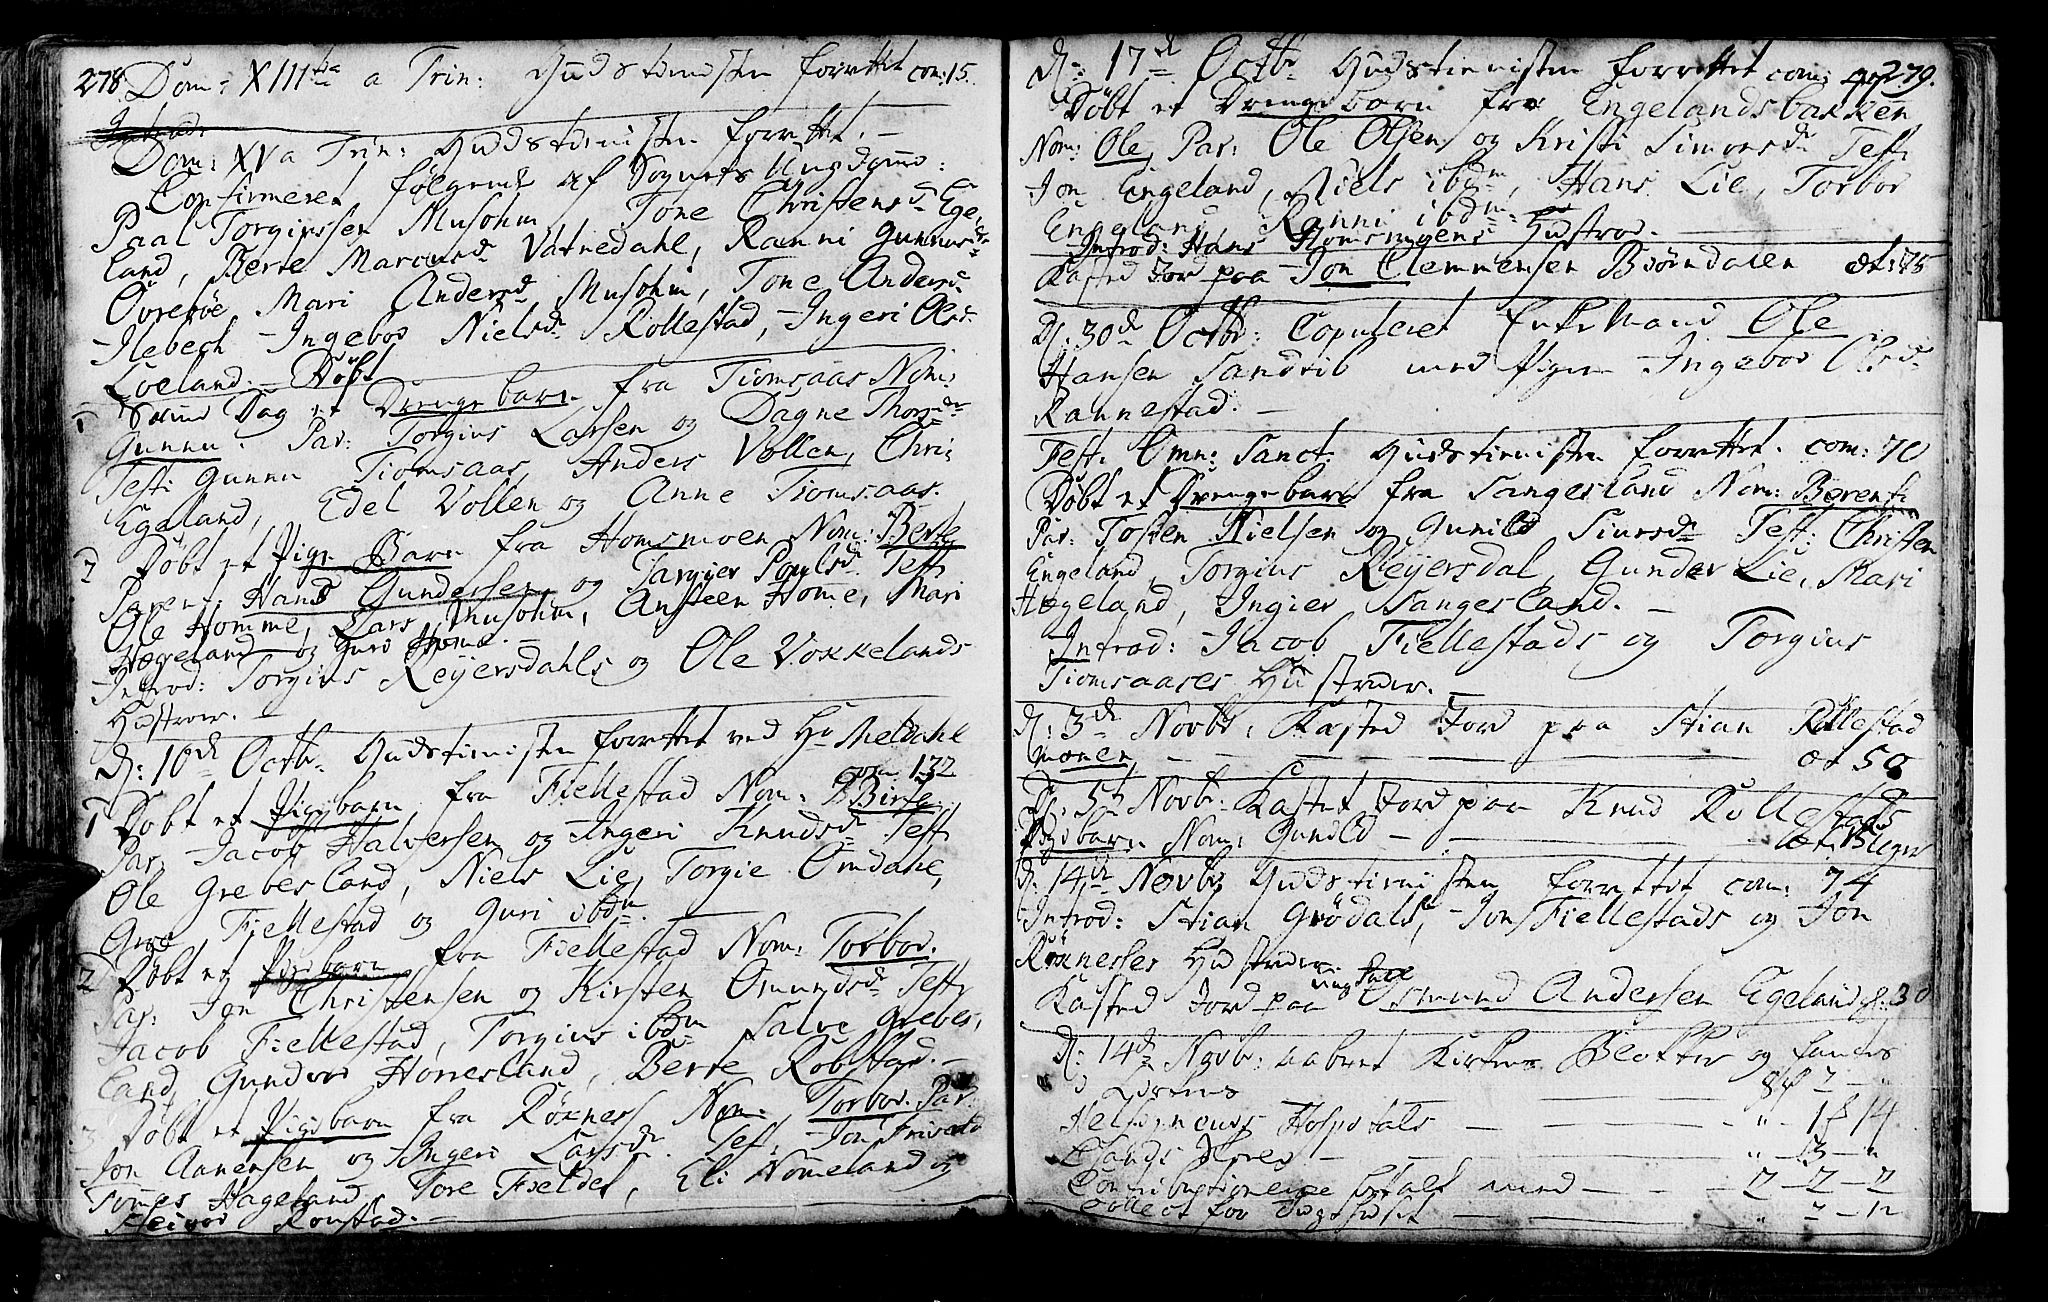 278. Dom: XIII a Trin: Gudstienisten forrettet com: 15.
Introd:
Dom: XV a Trin: Gudstienisten forrettet. —
Confirmeret følgende af Sognets Ungdom:
Paal Torgiussen Musohm, Tone Christensd. Ege-
land, Berte Marcusd. Vatnedahl, Ranni Gunnusd.
Øvrebøe, Mari Andersd. Musohm, Tone Andersd.
Ilebech Ingebor Nielsd. Røllestad, Ingeri Olsd.
Loeland. — Døbt
1 Samme Dag et Drengebarn fra Tiomsaas Nom:
Gunnu. Par: Torgius Larsen og Dagne Thorsd.
Test: Gunnu Tiomsaas, Anders Vollen, Chri:
Egeland, Edel Vollen og Anne Tiomsaas.
2 Døbt et Pige Barn fra Homsmoen Nom: Berte
Paren: Hans Gundersen og Targier Poulsd. Test:
Ole Homme, Lars Musohm, Ansteen Home, Mari
Hægeland og Guri Home. —
Introd: Torgius Reyersdahls og Ole Vokkelands
Hustroer. —
D: 10d Octb. Gudstienisten forrettet ved Hr Meldahl
com 132
1 Døbt et Pigebarn fra Fiellestad Nom: Birte
Par: Jacob Halvorsen og Ingeri Knudsd. Test:
Ole Grebesland, Niels Lie, Torgie Omdahl,
Groe Fiellestad og Guri ibdm.
2 Døbt et Pigebarn fra Fiellestad Nom: Torbor.
Par: Jon Christensen og Kirsten Omundsd. Test:
Jacob Fiellestad, Torgius ibdm Salve Grebes-
land, Gundvor Honnesland, Berte Robstad. —
3 Døbt et Pigebarn fra Røxness Nom: Torbor. Par:
Jon Aanensen og Ingeri Larsd. Test: Jon
Tomes Hageland, Tore Fieldet, Eli Nomeland og
Reinstad. —
D: 17d Octb. Gudstienisten forrettet com: 279.
Døbt et Drengebarn fra Engelandsbakken
Nom: Ole, Par: Ole Olsen og Kristi Simonsd. Test:
Jon Engeland, Niels ibdm, Hans Lie, Torbor
Engeland, Ranni ibdm.
Introd: Hans Homsmoens Hustroe. —
Kasted Jord paa Jon Clemmensen Biørndalen æt: 75
D: 30d Octbr: Copuleret Enke Mand Ole
Hansen Sandrib med Pigen Ingebor Olsd.
Rannestad. —
Fest: Omn: Sanct: Gudstienisten forrettet. com: 70
Døbt et Drengebarn fra Sangesland Nom: Berent
Par: Tosten Nielsen og Gunild Siursd. Test: Christen
Engeland, Torgius Reyersdal, Gunder Lie, Mari
Hægeland, Ingier Sangesland. —
Introd: Jacob Fiellestads og Torgius
Tiomsaases Hustruer. —
D: 3d Novbr: Kasted Jord paa Stian Røllestad
Monen, — — — æt 50
D: 5t Novbr: Kastet Jord paa Knud Røllestads
Pigebarn Nom: Gunild — — æt: Uger
D: 14d Novbr Gudstienisten forrettet com: 74
Introd: Stian Grødals, Jon Fiellestads og Jon
Røxnesses Hustruer
Kasted Jord paa Ung Karl Osmund Andersen Egeland æ: 30
D: 14d Novb: aabnet Kirkens Blokker og fantes
i Qvarns — — 2 —
Helsinøers Hospitals — — 1 14
— — 13 —
Contributionerne betalt med — — 2 — 2 — 2
Collect for — —